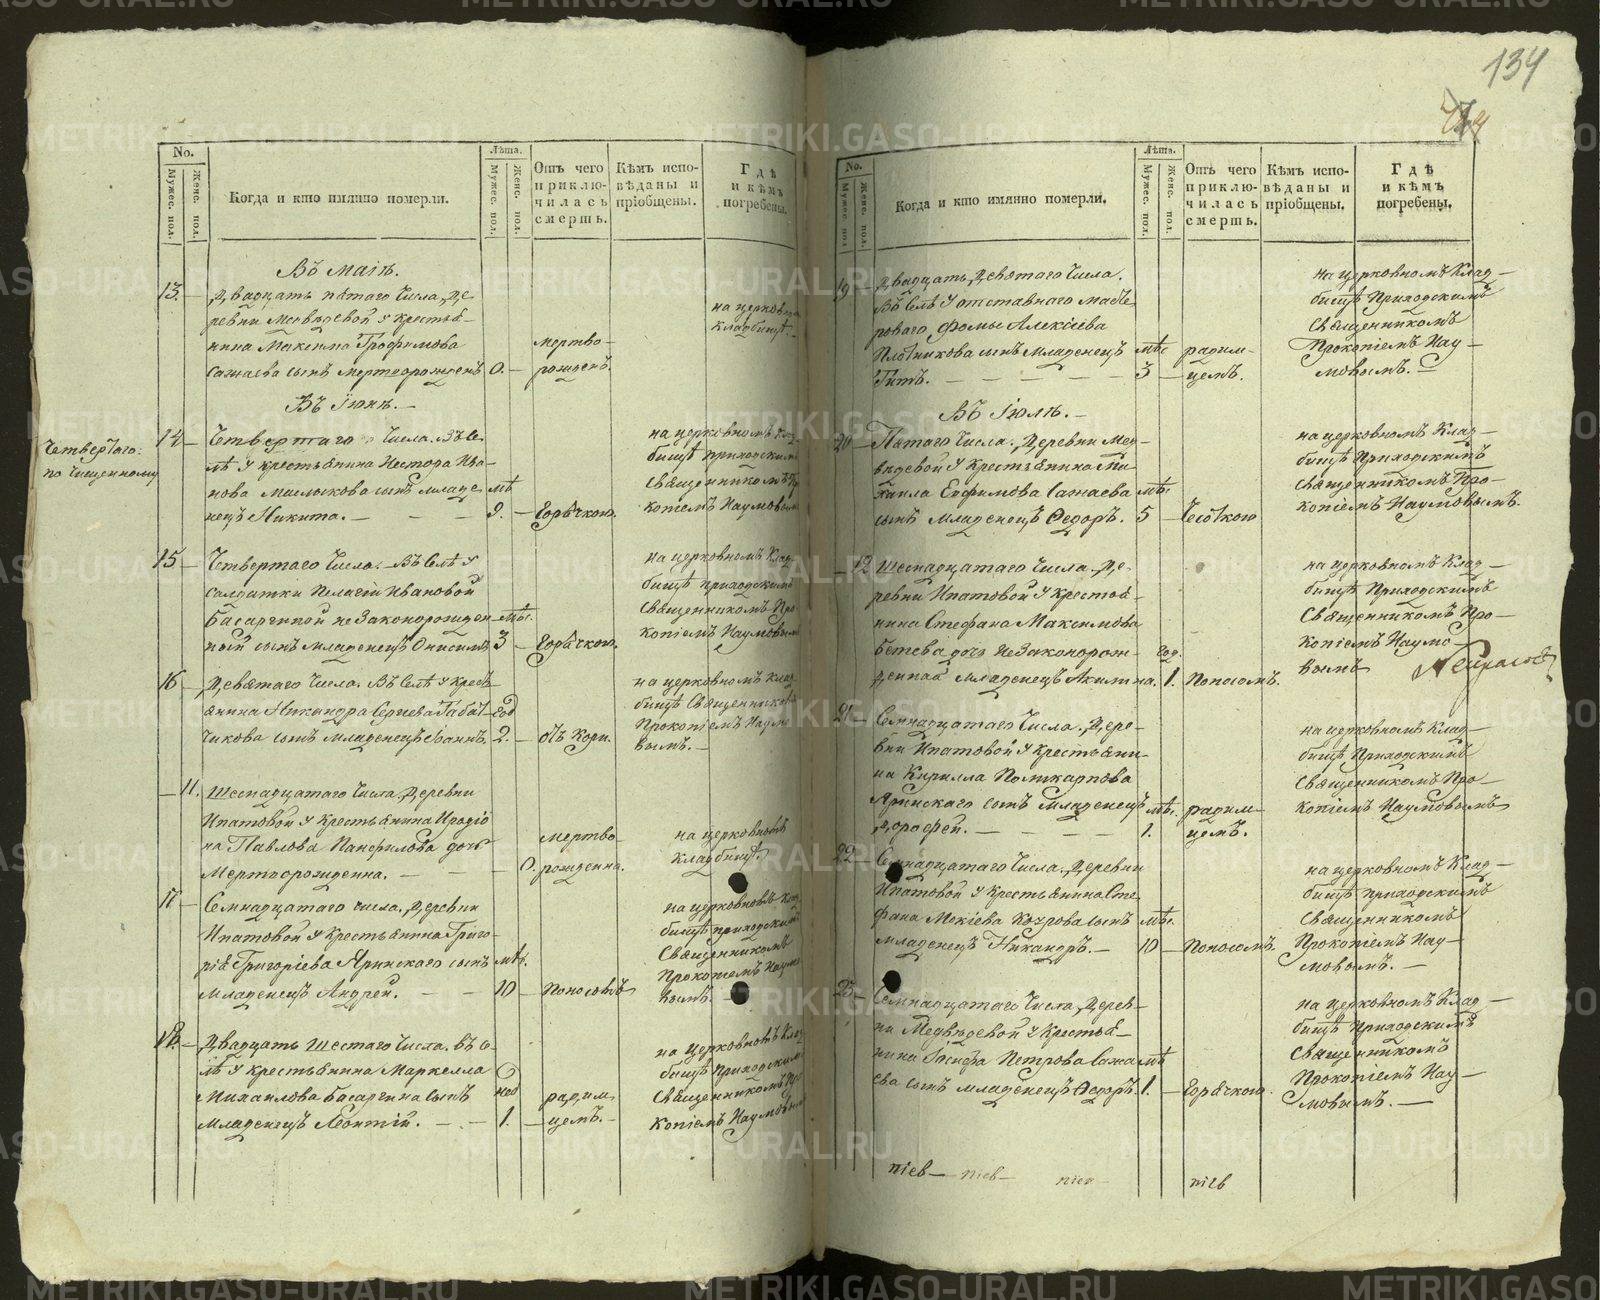 134
No.
Мужес. пол.
Женс. пол.
Когда и кто имянно померли.
Лѣта.
Мужес. пол.
Женс. пол.
Отъ чего
приклю-
чилась
смерть.
Кѣмъ испо-
вѣданы и
прiобщены.
Гдѣ
и кѣмъ
погребены.
Въ Маiѣ.
13. Двадцать пятаго Числа, Де
ревни Медвѣдевой у крестья-
нина Максима Трофимова
Сажаева сынъ мертворожденъ 0. —
мертво-
рожденъ.
на церковно
кладбищѣ
Въ Iюнѣ. —
Четвертаго:
по чищенному
14 — Четвертаго Числа. Въ Се
лѣ у крестьянина Нестора Ива-
нова Маслыкова сынъ младе мѣ
нецъ Никита. — — — 9. — Горячкою.
на церковномъ Кла
бищѣ приходскимъ
Священникомъ Пр
копiемъ Наумовым
15 — Четвертаго Числа. — Въ Селѣ у
солдатки Пелагiи Ивановой
Басаргиной незаконорожден — мѣс.
ный сынъ младенецъ Онисимъ 3 — Горячкою.
на церковномъ Клад
бищѣ приходскимъ
Священникомъ Про
копiемъ Наумовым
16 — Девятаго Числа. Въ Селѣ у кресть
янина Никандра Сергиева Табат — год
чикова сынъ младенецъ Iоаннъ. 2. — отъ Кори.
на церковномъ клад
бищѣ Священником
Прокопiемъ Наумо
вымъ. —
— 11. Шестнадцатаго Числа. Деревни
Ипатовой у Крестьянина Иродiо
на Павлова Панфилова дочь
Мертворожденна. — — — 0. рожденна.
мертво
на церковномъ
кладбищѣ.
17 — Семнадцатаго числа. Деревни
Ипатовой у крестьянина Григо-
рiя Григорiева Яринскаго сынъ мѣс.
младенецъ Андрей. — — 10 — Поносомъ
на церковномъ Кла
бищѣ приходским
Священникомъ
Прокопiемъ Наумо
вымъ. —
18. — Двадцать Шестаго Числа. Въ Се-
лѣ у крестьянина Маркелла
Михаилова Басаргина сынъ
младенецъ Леонтiй. — — 1. —
радим
цемъ. —
на Церковномъ Кла
бищѣ Приходским
Священникомъ Про
копiемъ Наумовым
No.
Мужес. пол
Женс. пол.
Когда и кто имянно померли.
Лѣта.
Мужес. пол.
Женс. пол.
Отъ чего
приклю-
чилась
смерть.
Кѣмъ испо-
вѣданы и
прiобщены.
Гдѣ
и кѣмъ
погребены.
19 — Двадцать Девятаго Числа.
Въ Селѣ у отставнаго масте
роваго Фомы Алексiева
Плотникова сынъ Младенецъ мѣс
Титъ. — — — — — 3 —
радим-
цемъ.
на церковномъ Клад —
бищѣ Приходскимъ
Священникомъ
Прокопiемъ Нау —
мовымъ. —
Въ Iюлѣ. —
20 — Пятаго Числа. Деревни Мед-
вѣдевой у Крестьянина Ми-
хаила Евфимова Сажаева мѣс.
сынъ младенецъ Ѳедоръ. 5 — Чесоткою
на церковномъ Клад —
бищѣ Приходскимъ
Священникомъ Про-
копiемъ Наумовымъ.
— 12 Шестнадцатаго Числа. Де-
ревни Ипатовой у Крестья-
нина Стефана Максимова
бетева дочь незаконорож- год.
денная младенецъ Акилина. 1. Поносомъ.
на церковномъ Клад —
бищѣ Приходскимъ
Священникомъ Про-
копiемъ Наумо-
вымъ
21 — Семнадцатаго Числа. Дере-
вни Ипатовой у Крестьяни-
на Кирилла Поликарпова
Яринскаго сынъ младенецъ мѣс.
Дорофей. — — — — 1.
радим-
цемъ.
на церковномъ Клад —
бищѣ Приходскимъ
Священникомъ Про —
копiемъ Наумовымъ
22 — Семнадцатаго Числа. Деревни
Ипатовой у Крестьянина Сте
фана Мокiева Кохрова сынъ мѣс.
младенецъ Никандръ. — 10 — Поносомъ.
на церковномъ Клад —
бищѣ приходскимъ
Священникомъ
Прокопiемъ Нау —
мовымъ. —
23 — Семнадцатаго Числа, Дерев-
ни Медвѣдевой у Крестья-
нина Iосифа Петрова Сажа мѣс
ева сынъ младенецъ Ѳедоръ. 1. — Горячкою.
на церковномъ Клад —
бищѣ Приходскимъ
Священникомъ
Прокопiемъ Нау —
мовымъ. —
пiев — пiев — пiев — пiев
METRIKI.GASO-URAL.RU